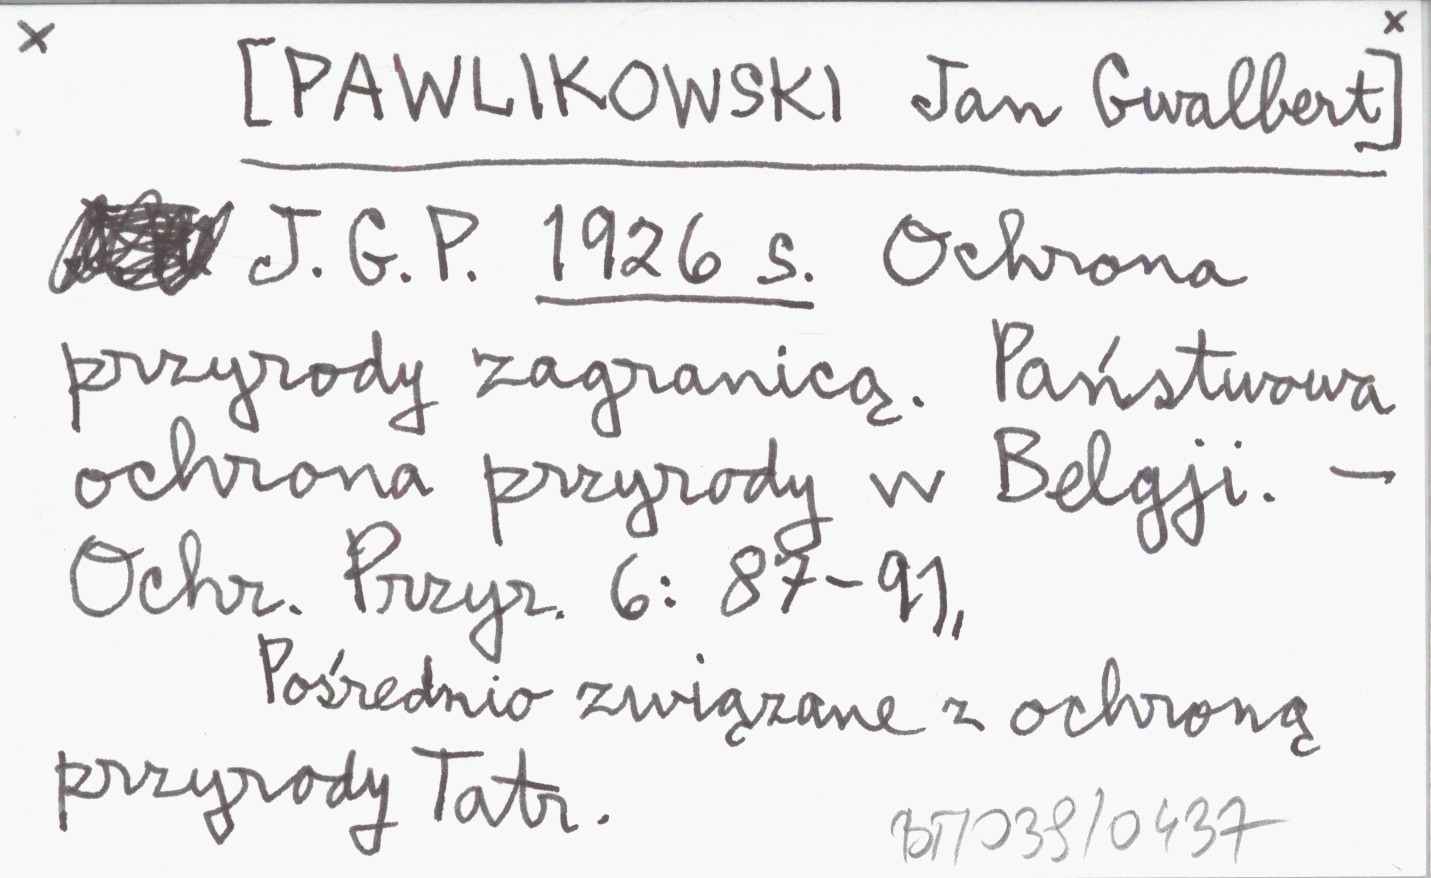 x x
[PAWLIKOWSKI Jan Gwalbert]
J.G.P. 1926 s. Ochrona
przyrody zagranicą. Państwowa
ochrona przyrody w Belgji. —
Ochr. Przyr. 6: 87-91,
Pośrednio związane z ochroną
przyrody Tatr.
BT/039/0437